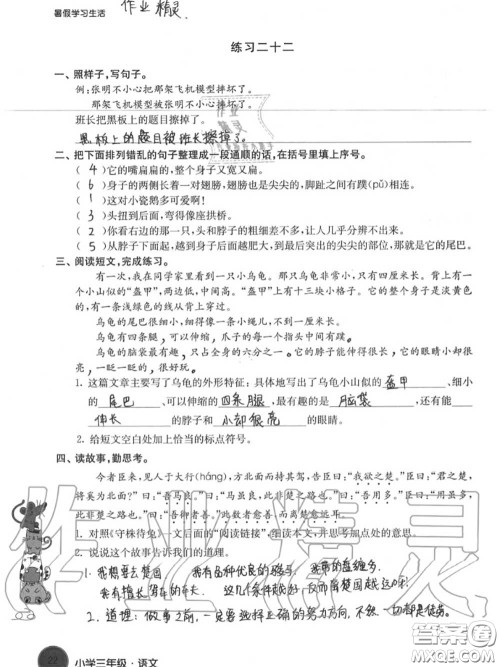 暑假学习生活
作业精灵
练习二十二
一、照样子,写句子。
例:张明不小心把那架飞机模型摔坏了。
那架飞机模型被张明不小心摔坏了。
班长把黑板上的题目擦掉了。
黑板上的题目被班长擦掉了。
二、把下面排列错乱的句子整理成一段通顺的话,在括号里填上序号。
( 4 )它的嘴扁扁的,整个脖子又宽又扁。
( 6 )身子的两侧长着一对翅膀,翅膀也是尖尖的,脚趾之间有璞(pǔ)相连。
( 1 )这对小瓷鹅多可爱啊!
( 3 )头扭到后面,弯得像座拱桥。
( 2 )你看右边的那一只,头和脖子的粗细差不多,让人几乎分辨不出来。
( 5 )从脖子下面起,越到后面越肥大,到最后突出的尖尖的部位,那就是它的尾巴。
三、阅读短文,完成练习。
有一次,我在同学家里看到一只小乌龟。那只乌龟非常小,只有四厘米长。背上有一
个小山似的“盔甲”,两边低,中间高。“盔甲”上有十三块小格子。它的整个身子是淡黄色
的,有一条浅绿色的线从背上穿过。
乌龟的尾巴很细小,细得像一条小绳儿,不到一厘米长。
乌龟有四条腿,可以伸缩,爪子的每一个指头中间有蹼。
乌龟的脑袋最有趣,只占全身的六分之一。它的脖子能伸得很长,它的眼睛小却很
亮,一眨一眨的,很好玩。
1. 这篇文章主要写了乌龟的外形特征:具体写出了乌龟小山似的 盔甲 、细小
的 尾巴 、可以伸缩的 四条腿 ,最有趣的是 脑袋 ,还有能
伸长 的脖子和 小却很亮 的眼睛。
2. 给短文空白处加上恰当的标点符号。
四、读故事,勤思考。
今者臣来,见人于大行(háng),方北面而持其驾,告臣曰:“我欲之楚。”臣曰:“君之楚,
将奚为北面?”曰:“吾马良。”曰:“马虽良,此非楚之路也。”曰:“吾用多。”曰:“用虽多,
此非楚之路也。”曰:“吾御者善。”此数者愈善,而离楚愈远耳。
1. 对照《守株待兔》一文后面的“阅读链接”,细读本文,并思考加点处的意思。
2. 说说这个故事告诉我们的道理。
2. 道理:做事之前,一定要选择正确的努力方向,不然一切都是徒劳。
22
小学三年级·语文
作业精灵